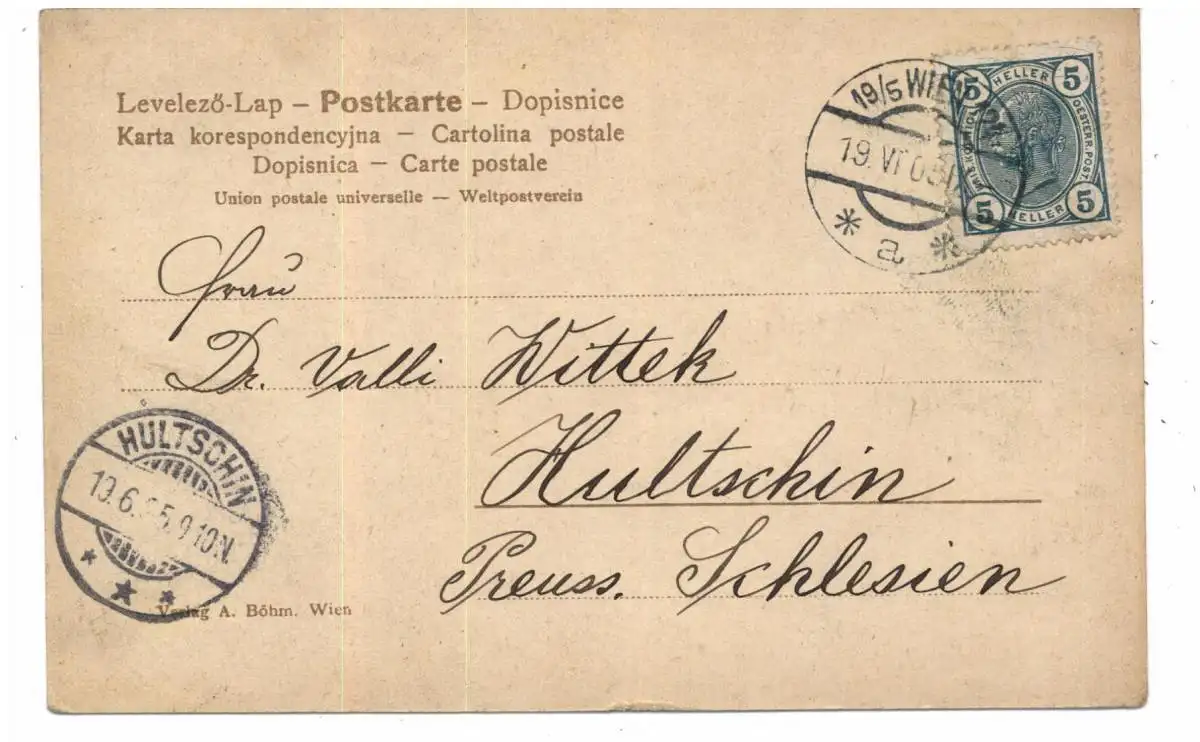 Levelező-Lap – Postkarte – Dopisnice
Karta korespondencyjna – Cartolina postale
Dopisnica – Carte postale
Union postale universelle — Weltpostverein
19/5 WIEN
19. VI 05
* a *
5 HELLER 5
OESTERR. POST.
5 HELLER 5
Frau
Dr. Valli Wittek
Hultschin
Preuss. Schlesien
HULTSCHIN
19.6.05.9-10N.
Verlag A. Böhm. Wien